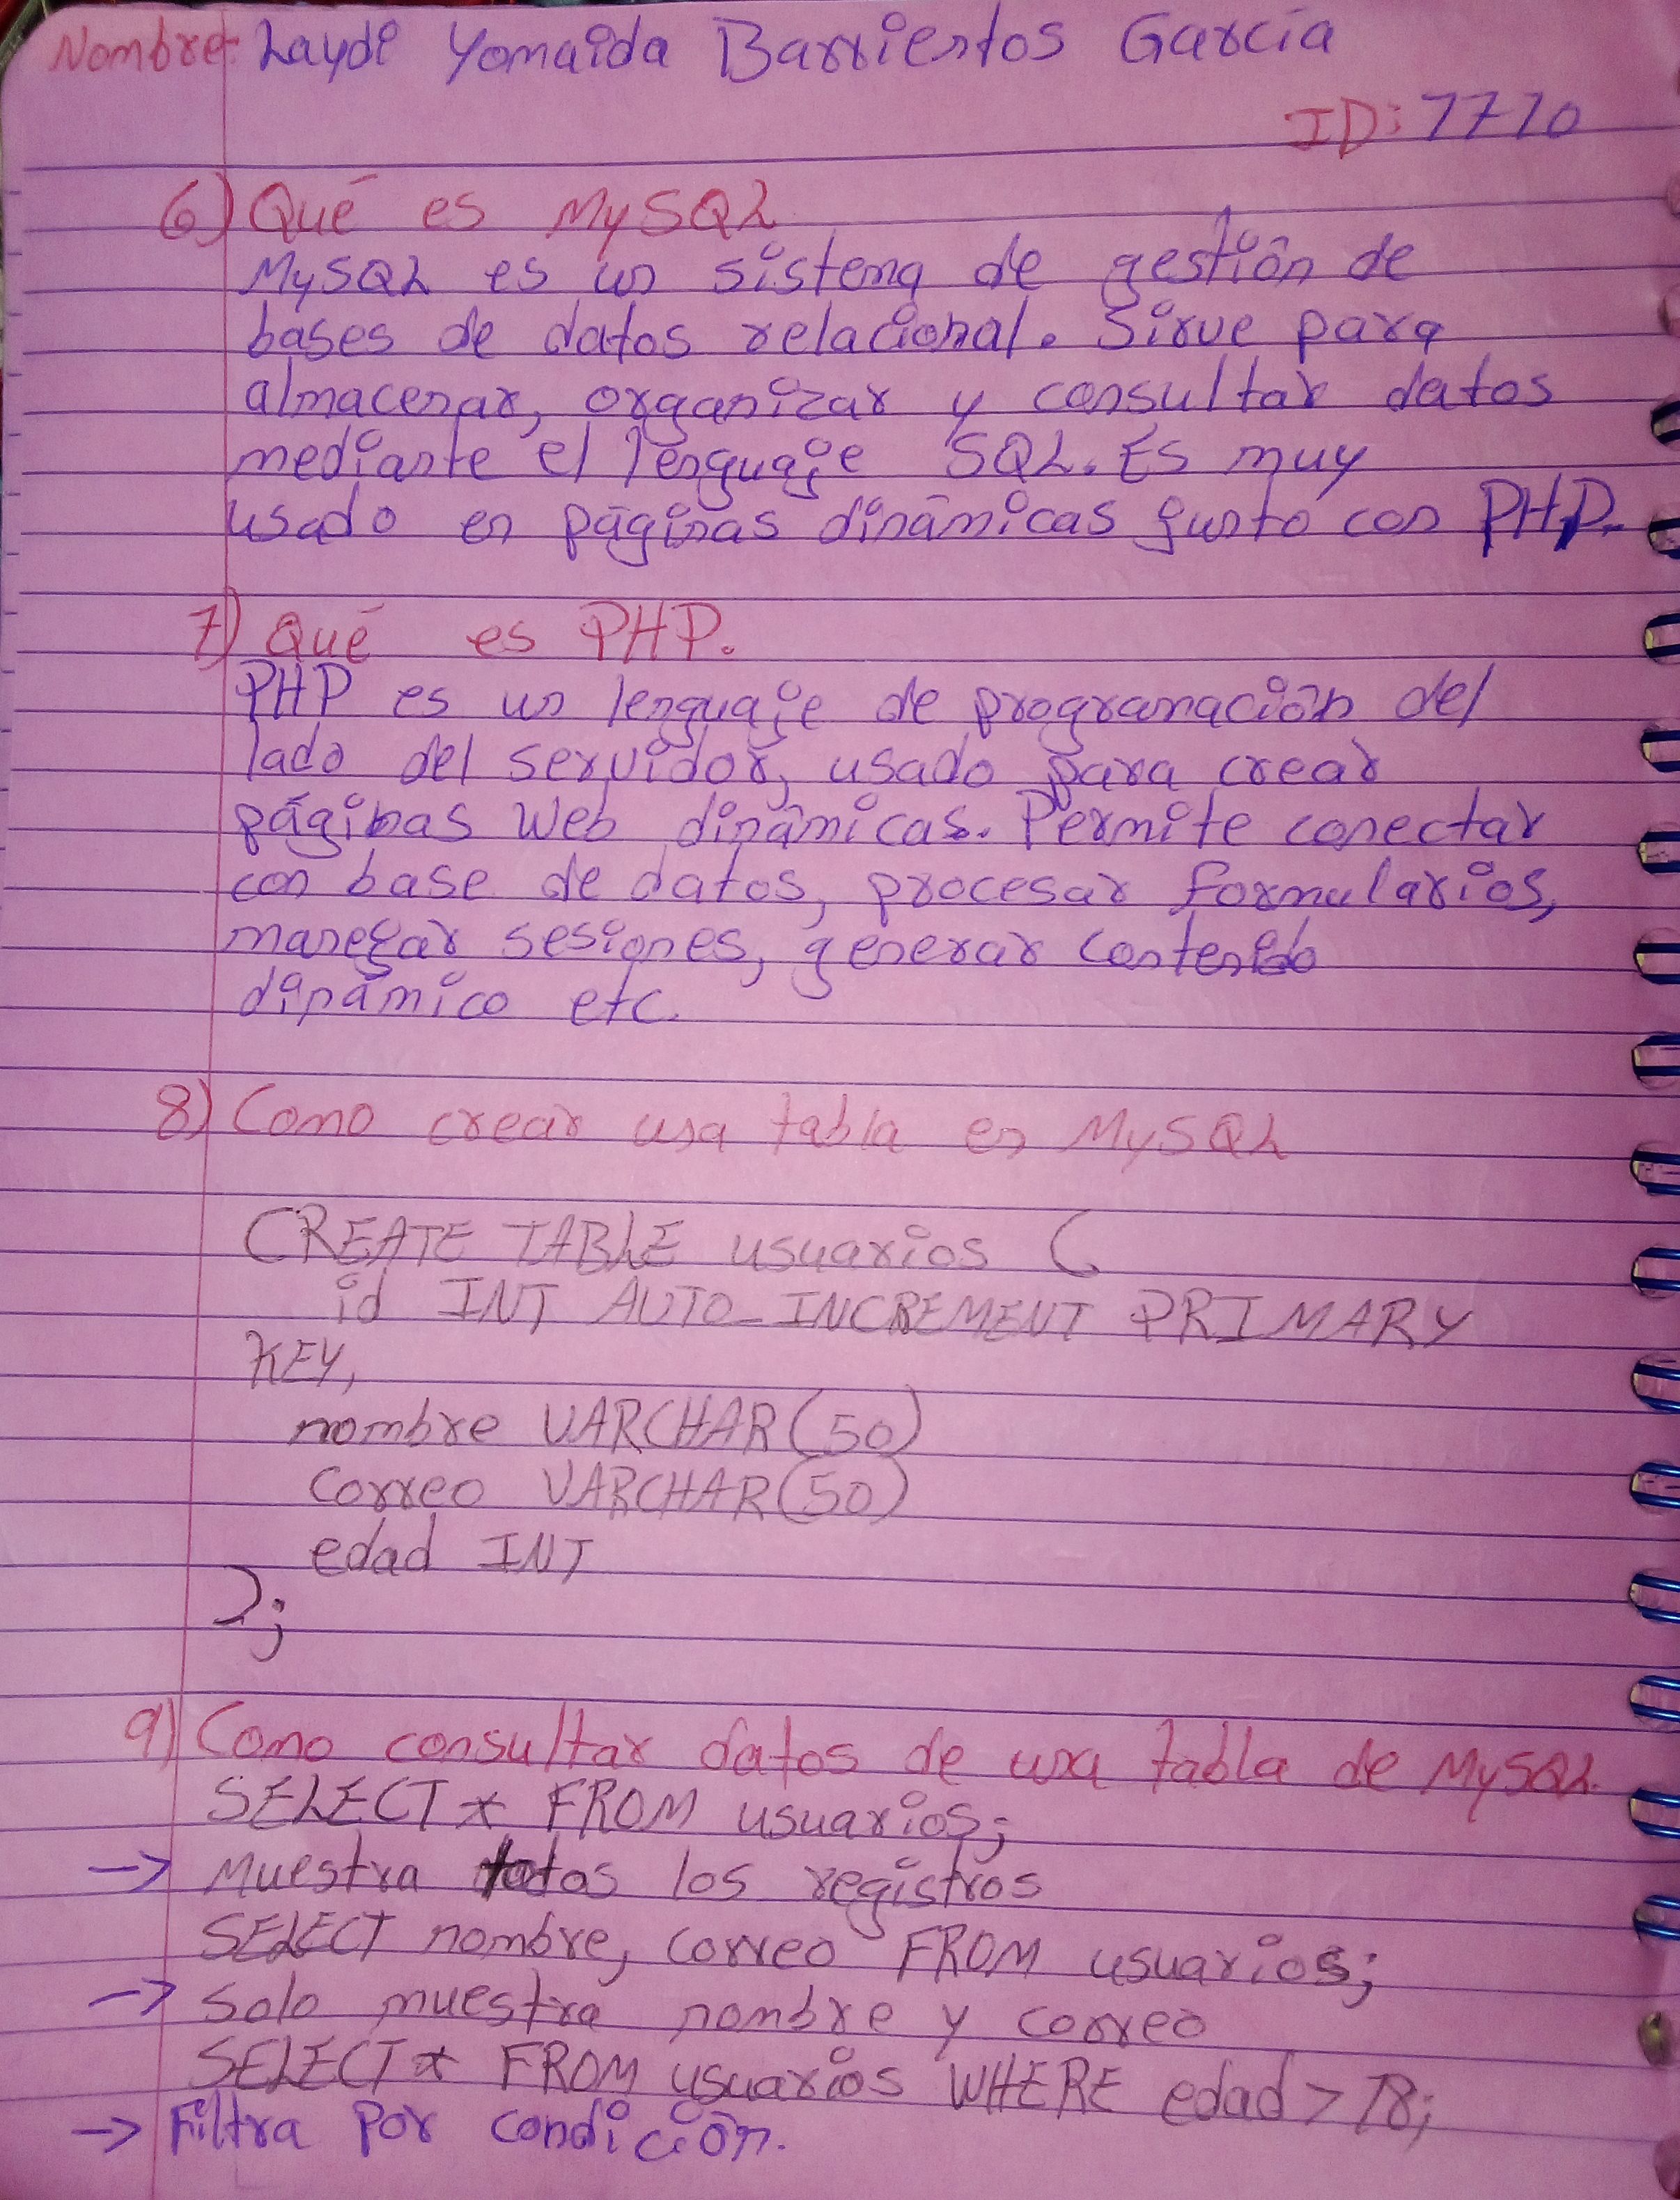 Nombre: Laydi Yomaida Barrientos García
ID: 7710
6) Qué es MySQL
MySQL es un sistema de gestión de
bases de datos relacional. Sirve para
almacenar, organizar y consultar datos
mediante el lenguaje SQL. Es muy
usado en páginas dinámicas junto con PHP.
7) Qué es PHP.
PHP es un lenguaje de programación del
lado del servidor, usado para crear
páginas Web dinámicas. Permite conectar
con base de datos, procesar formularios,
manejar sesiones, generar contenido
dinámico etc.
8) Como crear una tabla en MySQL
CREATE TABLE usuarios (
id INT AUTO_INCREMENT PRIMARY
KEY,
nombre VARCHAR(50)
correo VARCHAR(50)
edad INT
);
9) Como consultar datos de una tabla de MySQL.
SELECT * FROM usuarios;
→ Muestra todos los registros
SELECT nombre, correo FROM usuarios;
→ Solo muestra nombre y correo
SELECT * FROM usuarios WHERE edad > 18;
→ Filtra por condición.